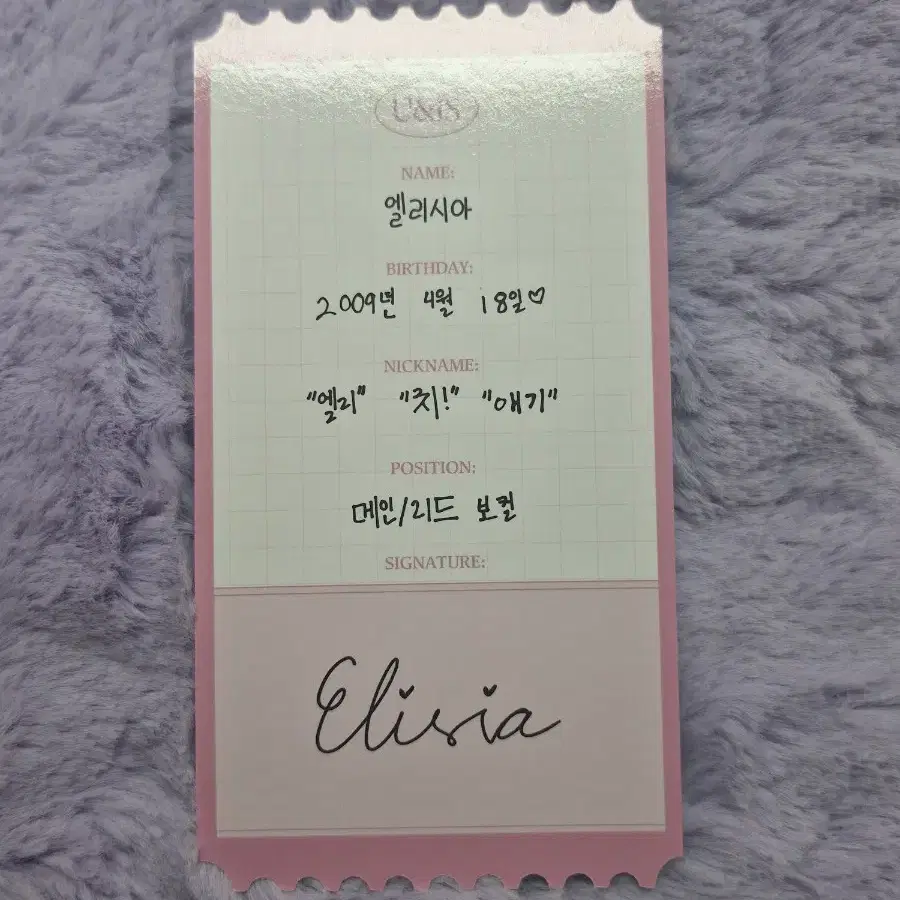 U&iS
NAME:
엘리시아
BIRTHDAY:
2009년 4월 18일♡
NICKNAME:
"엘리" "쥐!" "애기"
POSITION:
메인/리드 보컬
SIGNATURE:
Elisia